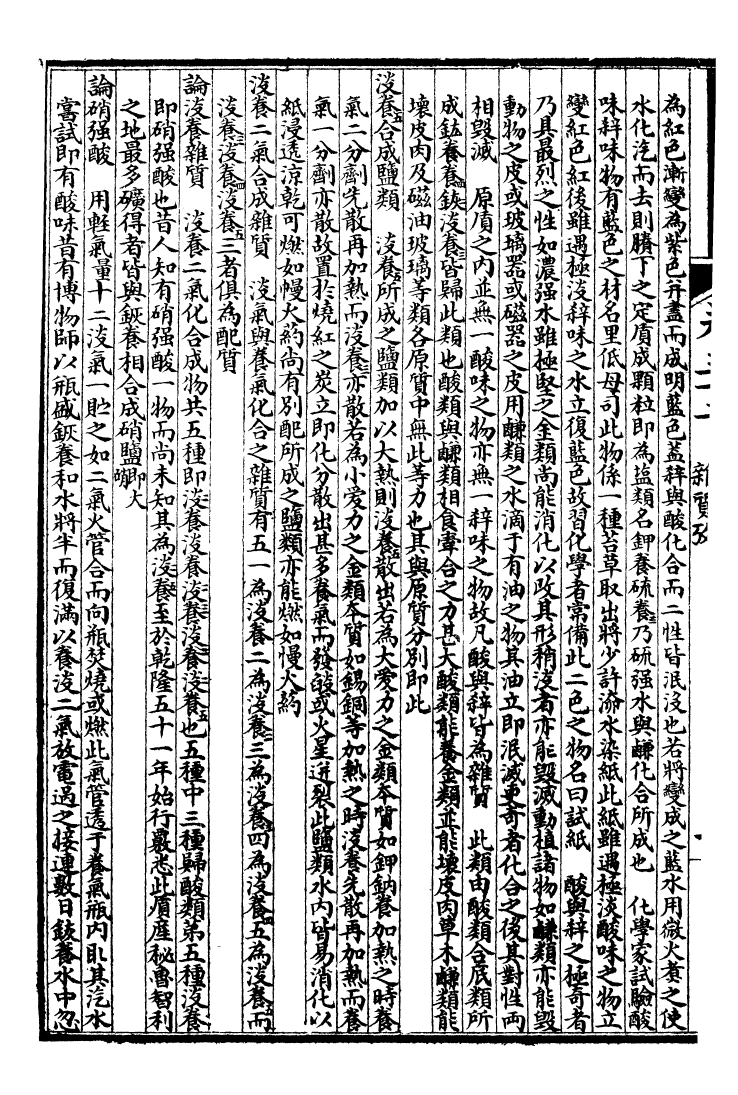 為紅色漸變為紫色幷盡而成明藍色蓋辢與酸化合而二性皆泯沒也若將變成之藍水用微火煮之使
水化汽而去則賸下之定質成顆粒即為塩類名鉀養硫養三乃硫强水與鹻化合所成也　化學家試驗酸
味辢味物有藍色之材名里低母司此物係一種苔草取出將少許渝水染紙此紙雖遇極淡酸味之物立
變紅色紅後雖遇極淡辢味之水立復藍色故習化學者常備此二色之物名曰試紙　酸與辢之極奇者
乃具最烈之性如濃强水雖極堅之金類尚能消化以改其形稍淡者亦能毀滅動植諸物如鹻類亦能毀
動物之皮或玻璃器或磁器之皮用鹻類之水滴于有油之物其油立即泯滅更奇者化合之後其對性両
相毀滅　原質之內並無一酸味之物亦無一辢味之物故凡酸與辢皆為雜質　此類由酸類合底類所
成鈷養養鋏淡養三皆歸此類也酸類與鹻類相食牽合之力甚大酸類能養金類並能壞皮肉草木鹻類能
壞皮肉及磁油玻璃等類各原質中無此等力也其與原質分別即此
淡養五合成鹽類　淡養五所成之鹽類加以大熱則淡養五散出若為大愛力之金類本質如鉀鈉養加熱之時養
氣二分劑先散再加熱而淡養三亦散若為小愛力之金類本質如錫銅等加熱之時淡養先散再加熱而養
氣一分劑亦散故置於燒紅之炭立即化分散出甚多養氣而發㷔或火星迸裂此鹽類水內皆易消化以
紙浸透涼乾可燃如慢火約尚有別配所成之鹽類亦能燃如慢火約
淡養二氣合成雜質　淡氣與養氣化合之雜質有五一為淡養二為淡養二三為淡養三四為淡養四五為淡養五而
淡養三淡養四淡養五三者俱為配質
論淡養雜質　淡養二氣化合成物共五種即淡養淡養二淡養三淡養四淡養五也五種中三種歸酸類弟五種淡養五
即硝强酸也昔人知有硝强酸一物而尚未知其為淡養五至於乾隆五十一年始行嚴悉此質産秘魯智利
之地最多礦得者皆與鋏養相合成硝鹽即火硝
論硝强酸　用輕氣量十二淡氣一貯之如二氣火管合而向瓶焚燒或燃此氣管透于養氣瓶內㫁其汽水
嘗試即有酸味昔有博物師以瓶盛鋏養和水將半而復滿以養淡二氣放電過之接連數日鋏養水中忽